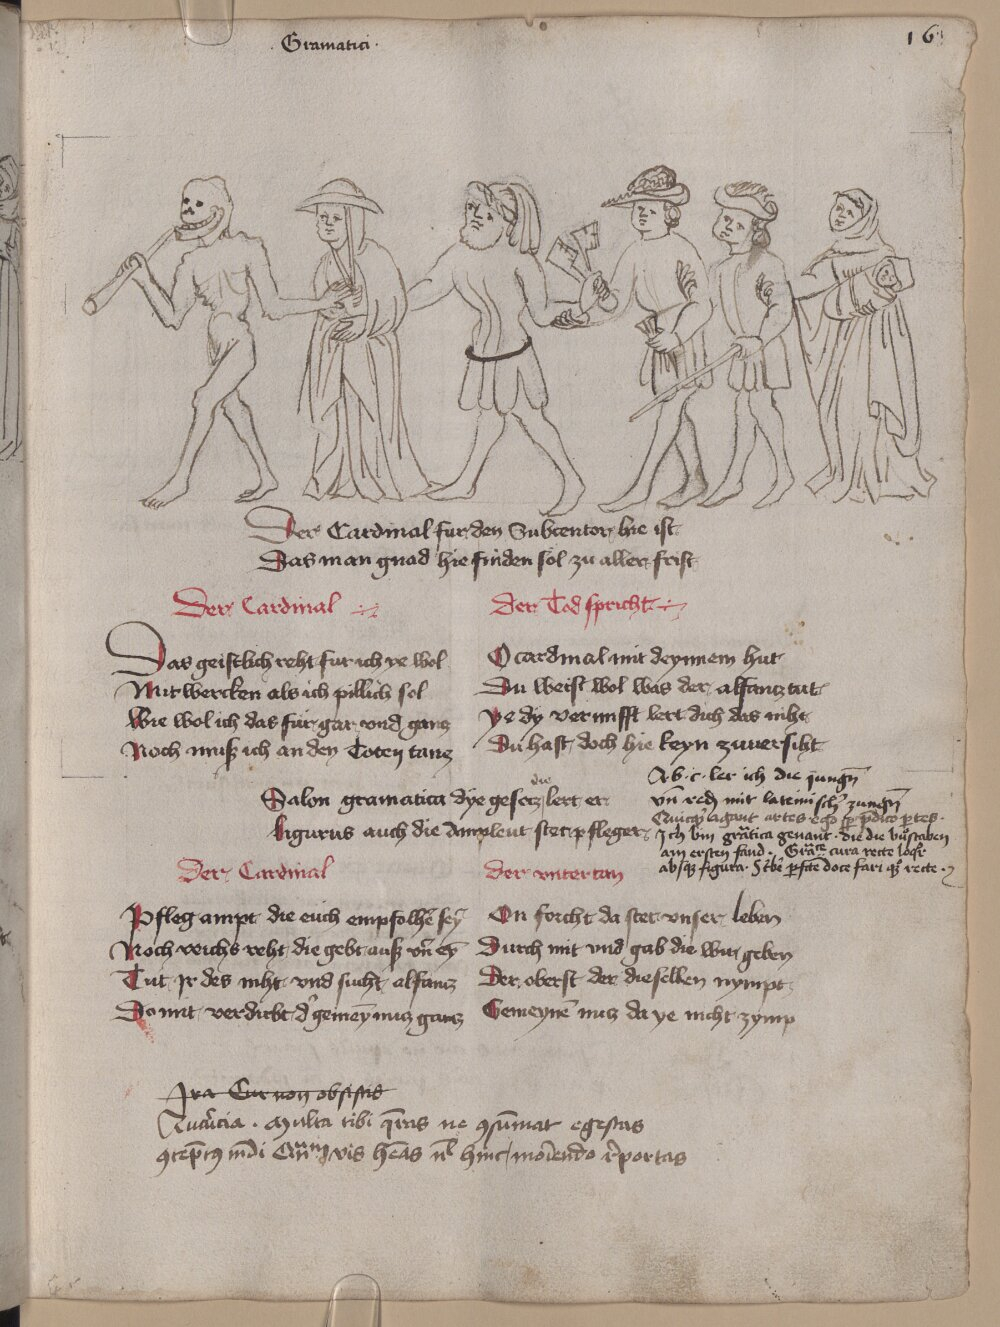 Gramatici
16
Der Cardinal fur den Subcentor hie ist
Das man gnad hie finden sol zu aller frist
Der Cardinal
Das geistlich reht fur ich ye wol
Mit wercken als ich pillich sol
Wie wol ich das für gar vnd gantz
Noch muß ich an den Toten tantz
Der Tod spricht
O cardinal mit deynnem hut
Du weist wol was der alfantz tut
Ye dy vernufft lert dich das niht
Du hast doch hie keyn zuversiht
die
Salon gramatica dye gesetz lert er
Ligurus auch die Amptleut stet pfleger
A b c ler ich die jungen
vnd red mit lateinischen zungen
artes ego
Ich bin gramatica genant die die buchstaben
am ersten fand cura recte
absque figura doce fari recte
Der Cardinal
Pfleg ampt die euch empfolhen sey
Noch reichs reht die gebt auß vnd ey
Tut Ir des niht vnd sucht alfantz
Da mit verdirbt der gemeyn nutz gantz
Der vntertan
On forcht da stet vnser leben
Durch mit vnd gab die wir geben
Der oberst der dieselben nympt
Gemeynem nutz da ye nicht zymp
Ira Cur non obsistis
Avaricia multa tibi queras ne consumat egestas
vis nil hinc moriendo reportas